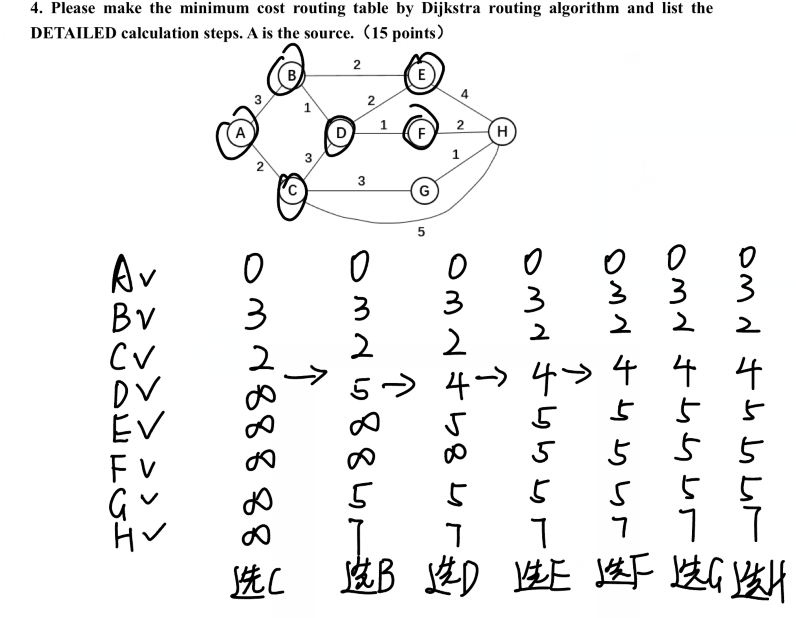 4. Please make the minimum cost routing table by Dijkstra routing algorithm and list the
DETAILED calculation steps. A is the source.（15 points）
B 2 E
3 1 2 4
A D 1 F 2 H
2 3 1
C 3 G
5
A✓ 0 0 0 0 0 0 0
B✓ 3 3 3 3 3 3 3
C✓ 2 2 2 2 2 2 2
D✓ ∞ → 5 → 4 → 4 → 4 4 4
E✓ ∞ ∞ 5 5 5 5 5
F✓ ∞ ∞ ∞ 5 5 5 5
G✓ ∞ 5 5 5 5 5 5
H✓ ∞ 7 7 7 7 7 7
选C 选B 选D 选E 选F 选G 选H